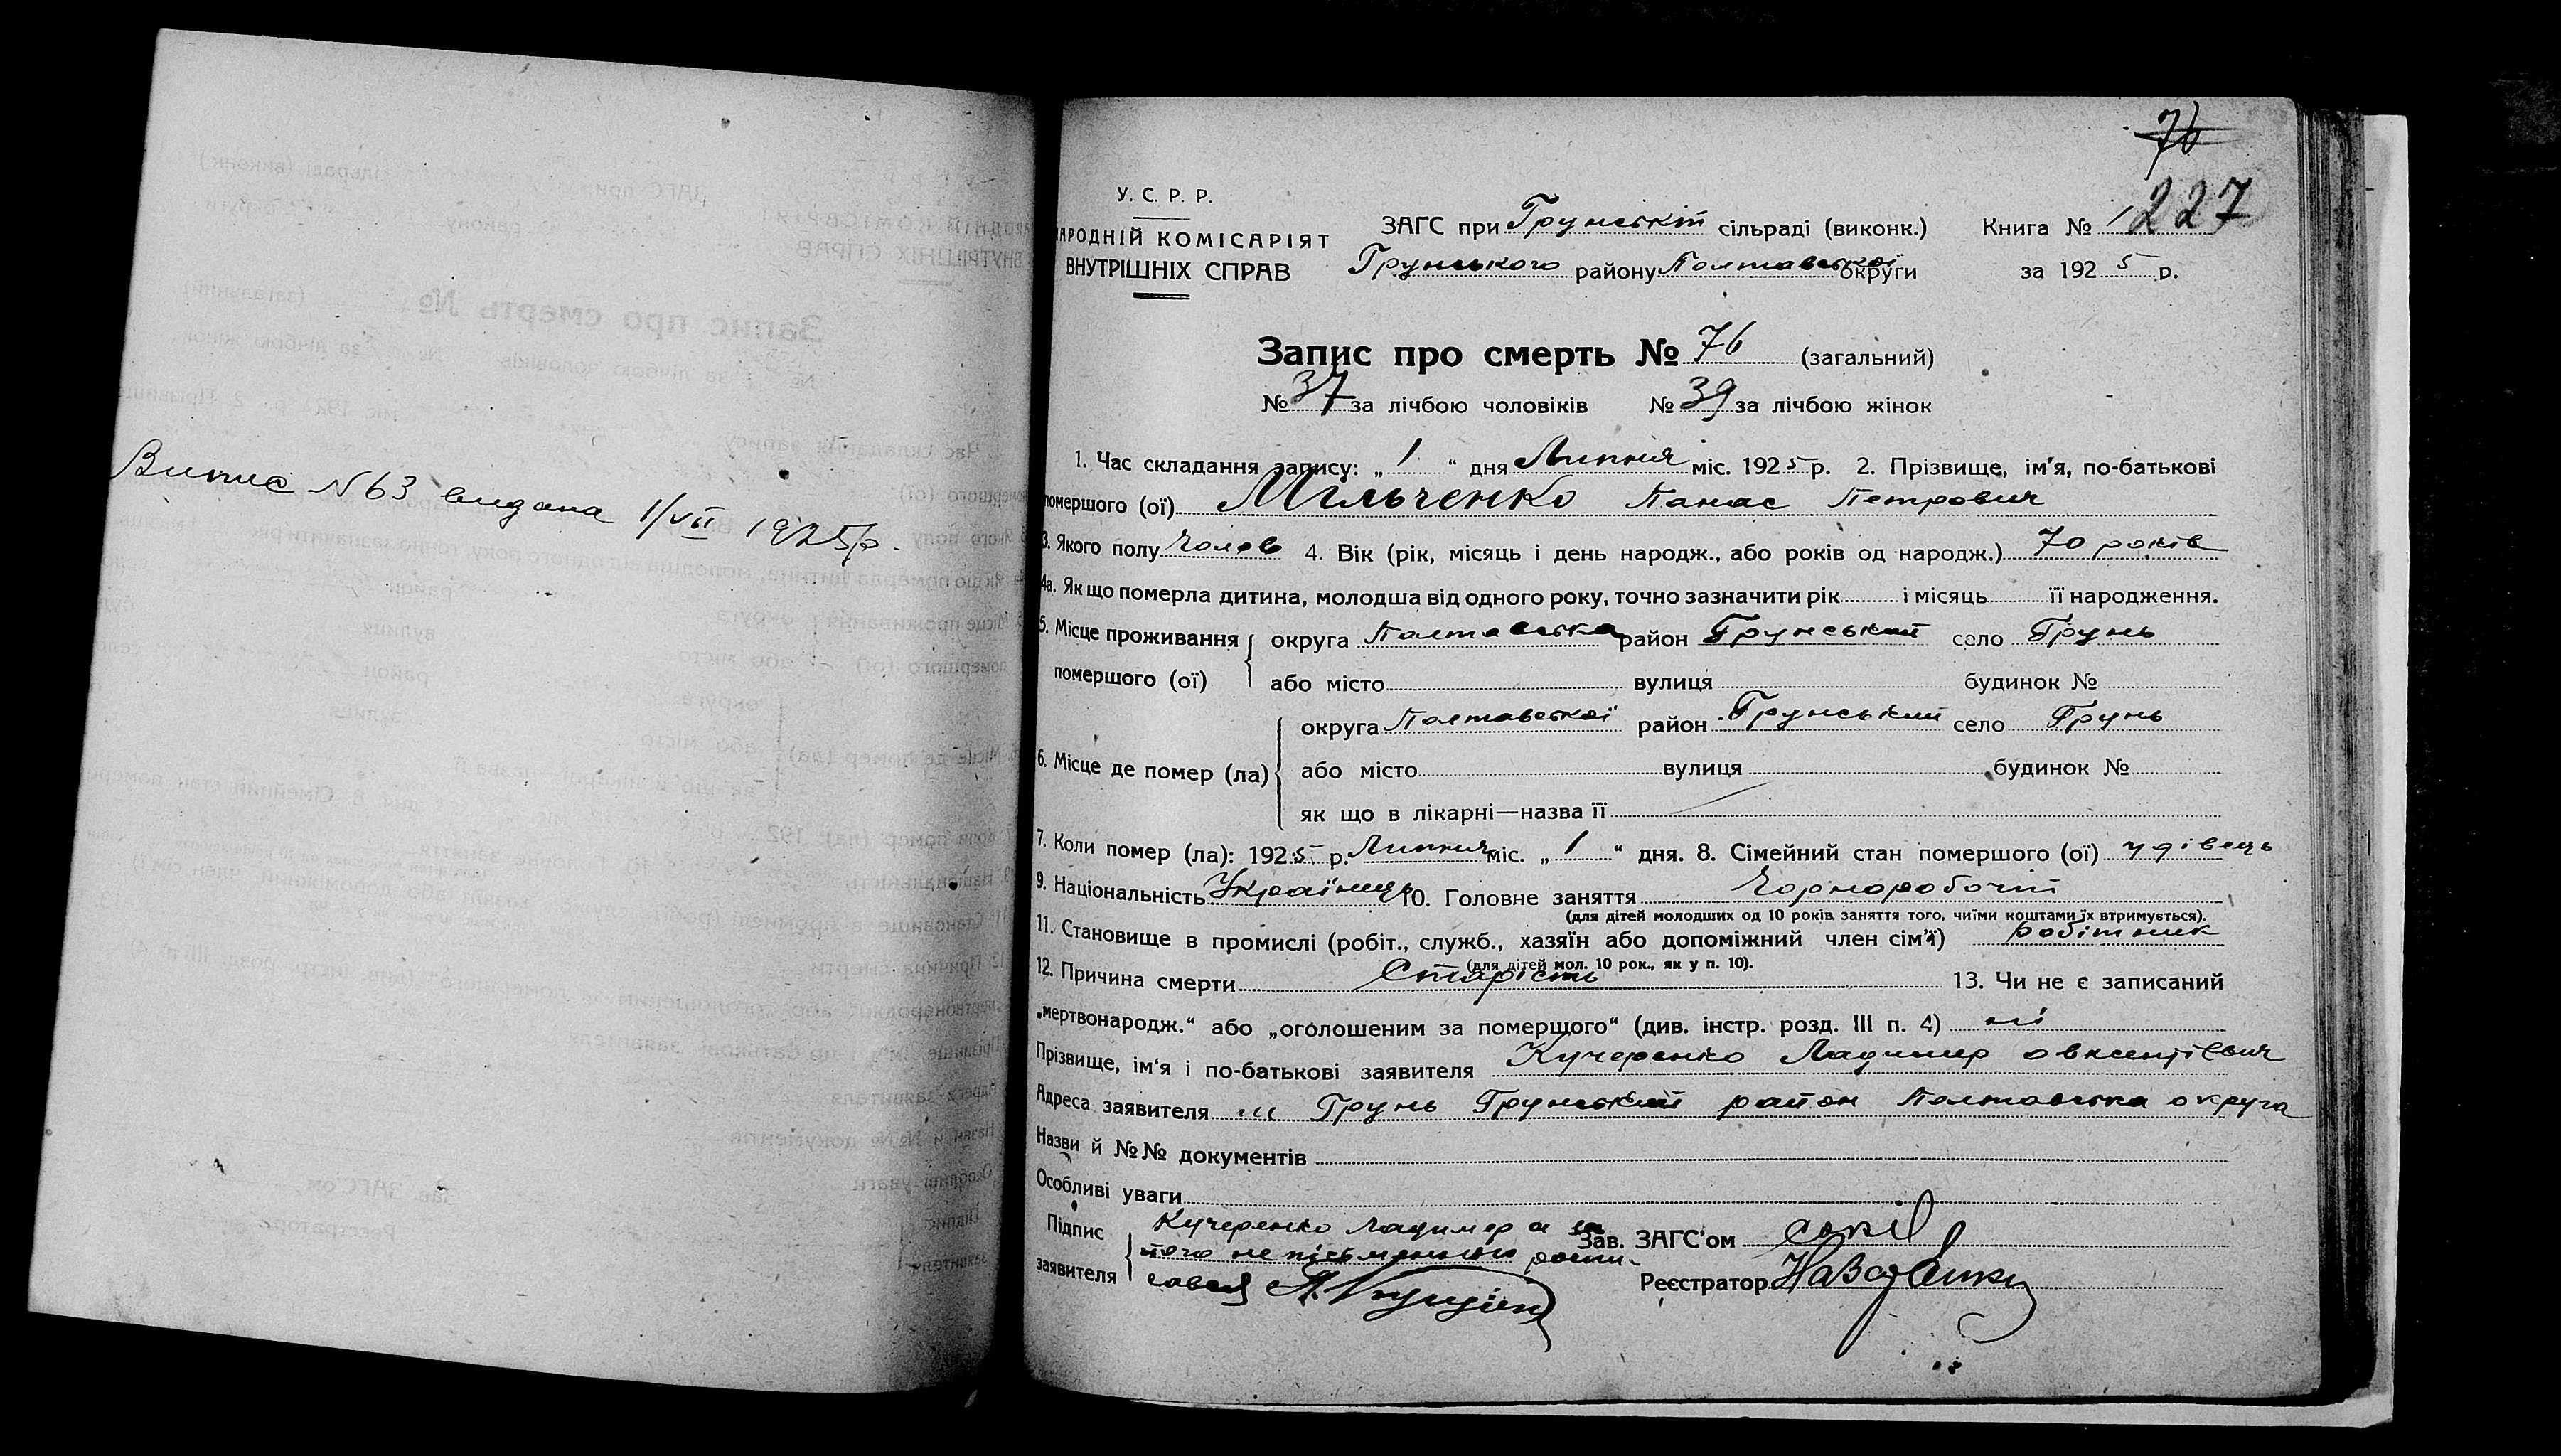 Випис N 63 видана 1/VII 1925 р.
76
227
У. С. Р. Р.
НАРОДНІЙ КОМІСАРІЯТ
ВНУТРІШНІХ СПРАВ
ЗАГС при Грунській сільраді (виконк.)
Грунського району Полтавської округи
Книга № 1
за 1925 р.
Запис про смерть № 76 (загальний)
№ 37 за лічбою чоловіків № 39 за лічбою жінок
1. Час складання запису: „ 1 “ дня Липня міс. 1925 р. 2. Прізвище, ім’я, по-батькові
помершого (ої) Мільченко Панас Петрович
3. Якого полу Чолов 4. Вік (рік, місяць і день народж., або років од народж.) 70 років
4а. Як що померла дитина, молодша від одного року, точно зазначити рік і місяць її народження.
5. Місце проживання округа Полтавська район Грунський село Грунь
помершого (ої) або місто вулиця будинок №
округа Полтавської район Грунський село Грунь
6. Місце де помер (ла) або місто вулиця будинок №
як що в лікарні—назва її
7. Коли помер (ла): 1925 р. Липня міс. „ 1 “ дня. 8. Сімейний стан помершого (ої) удівець
9. Національність Українець 10. Головне заняття Чорноробочій
(для дітей молодших од 10 років заняття того, чиїми коштами їх втримується).
11. Становище в промислі (робіт., служб., хазяїн або допоміжний член сім’ї) робітник
(для дітей мол. 10 рок., як у п. 10).
12. Причина смерти Старість 13. Чи не є записаний
„мертвонародж.“ або „оголошеним за померщого“ (див. інстр. розд. III п. 4) ні
Прізвище, ім‘я і по-батькові заявителя Кучеренко Ладимер овксентієвич
Адреса заявителя м Грунь Грунський район Полтавська округа
Назви й №№ документів
Особливі уваги
Підпис
заявителя
Кучеренко Ладимер а за
його не письменного розпи-
сався
Зав. ЗАГС’ом
Реєстратор